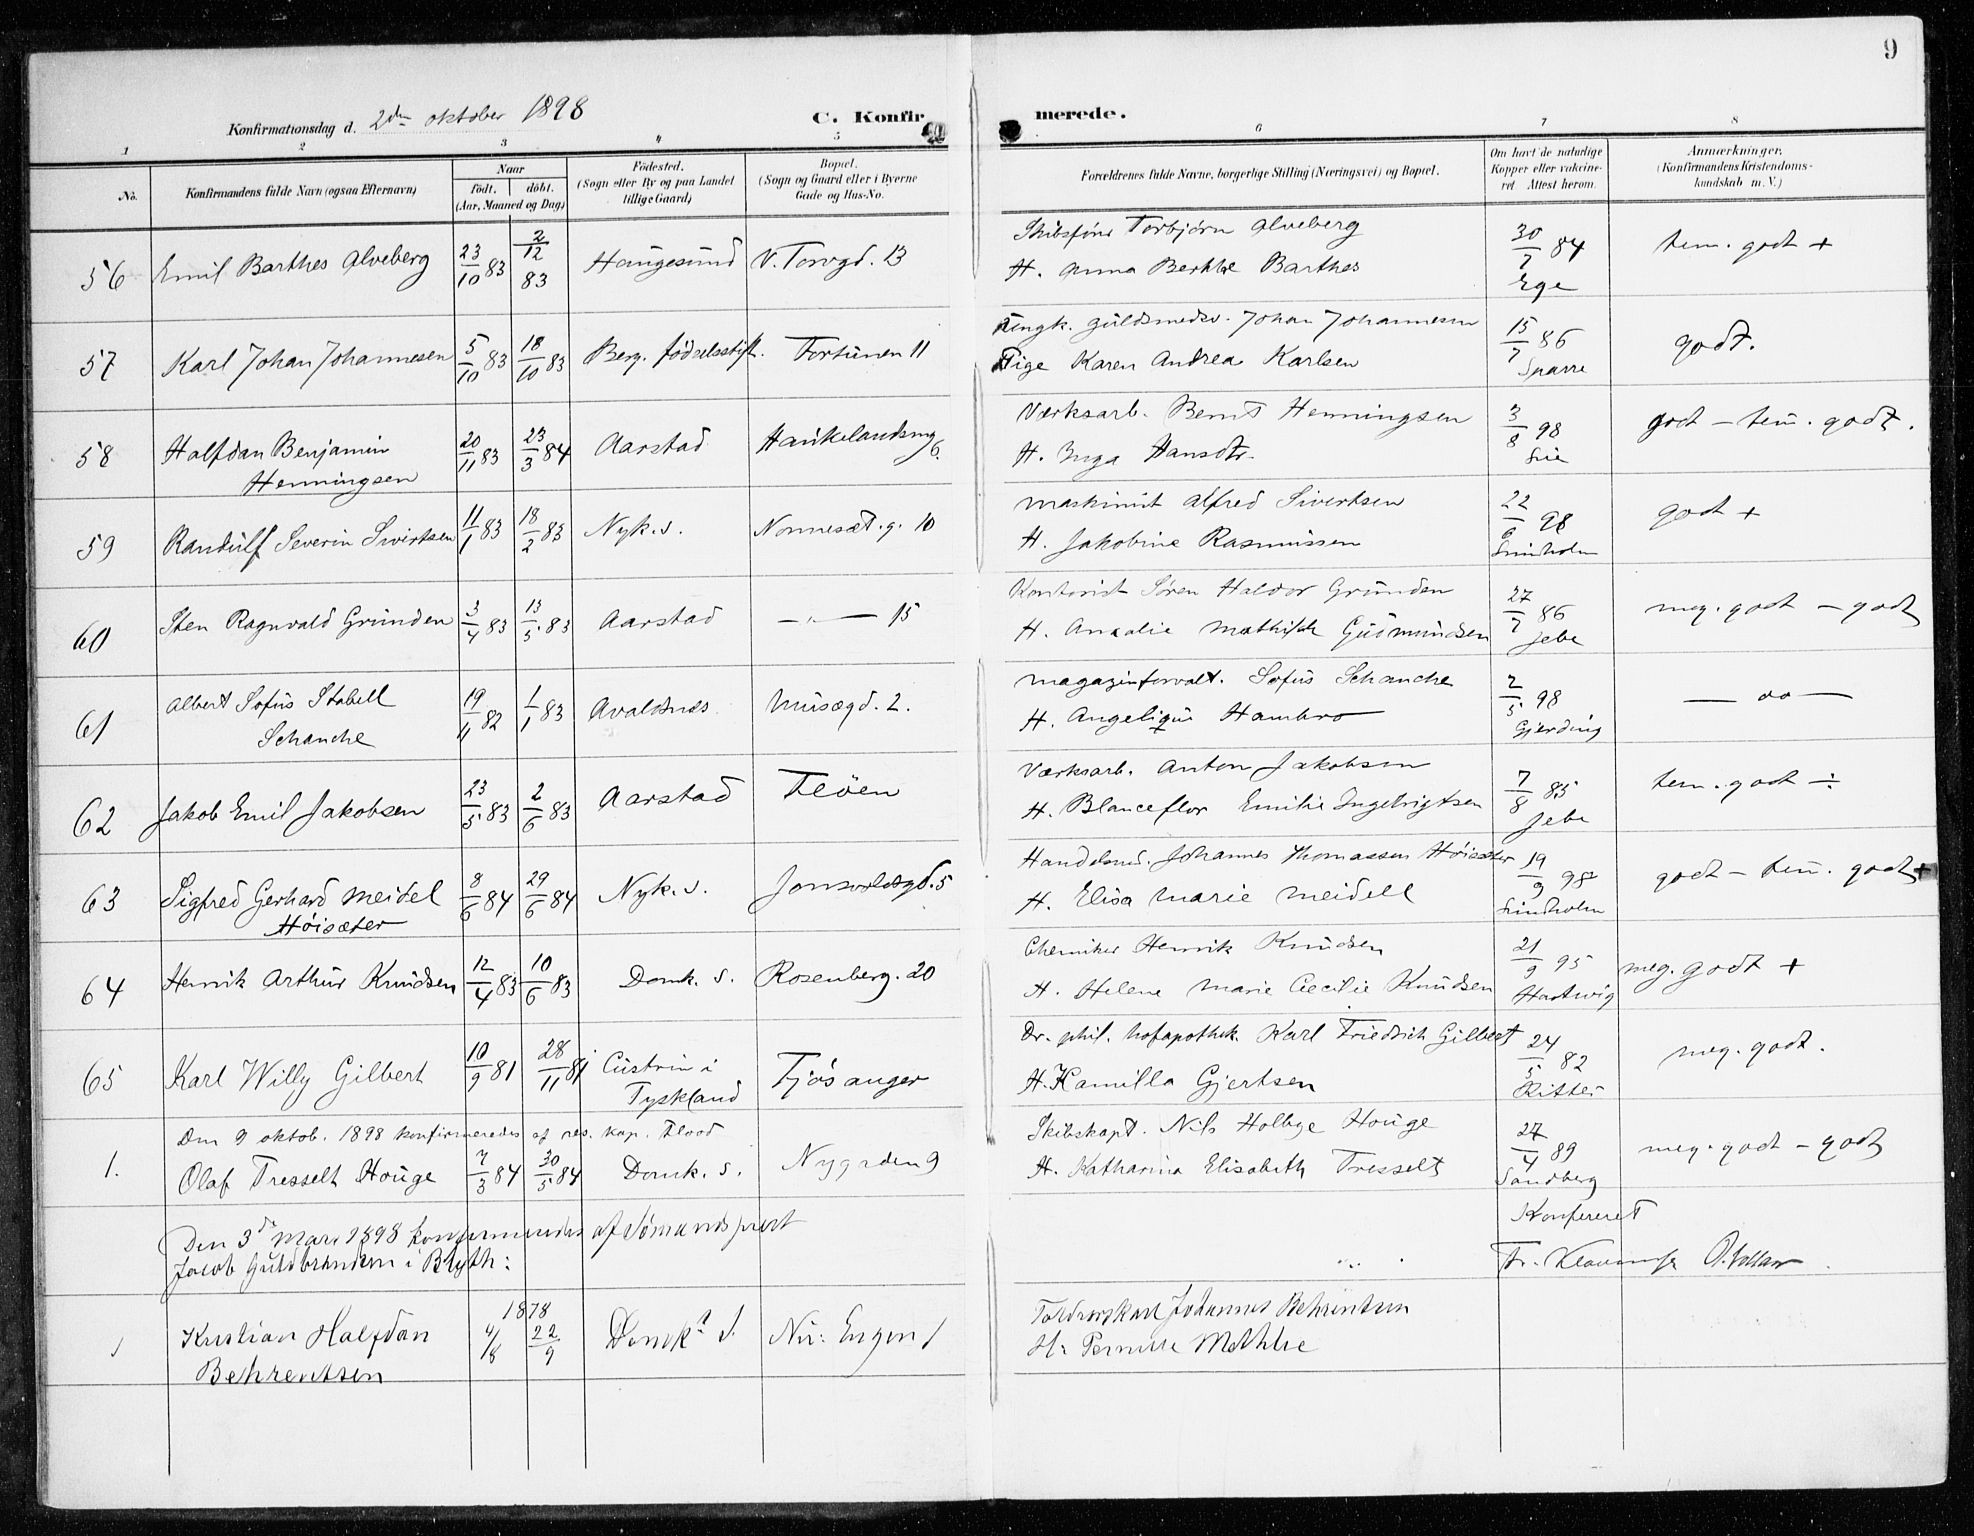 9
Konfirmationsdag d. 2den oktober 1898 C. Konfir merede.
1 2 3 4 5 6 7 8
No. Konfirmandens fulde Navn (ogsaa Efternavn) Naar født. døbt. (Aar, Maaned og Dag) Fødested. (Sogn eller By og paa Landet tillige Gaard) Bopæl. (Sogn og Gaard eller i Byerne Gade og Hus-No. Forældrenes fulde Navne, borgerlige Stilling (Næringsvei) og Bopæl. Om havt de naturlige Kopper eller vakcineret Attest herom. Anmærkninger. (Konfirmandens Kristendomskundskab m. V.)
56 Emil Barthes Alveberg 23/10 83 2/12 83 Haugesund V. Torvgd. 13 Torbjørn Alveberg 30/7 84 tem. godt +
H. Anna Barthes Ege
57 Karl Johan Johannesen 5/10 83 18/10 83 Berg. fødselsstift. Fortunen 11 Ungk. guldsmedsv. Johan Johannesen 15/7 86 godt.
Pige Karen Andrea Karlsen Sparre
58 Halfdan Benjamin 20/11 83 23/3 84 Aarstad 6. Værksarb. Bernt Henningsen 3/8 98 godt – tem. godt.
Henningsen H. Inga Hansdtr. Lie
59 Randulf Severin Sivertsen 11/1 83 18/2 83 Nyk. s. Nonnesæt. g. 10 Maskinist Alfred Sivertsen 22/6 98 godt +
H. Jakobine Rasmussen Lindholm
60 Sten Ragnvald Grunden 3/4 83 13/5 83 Aarstad — „ — 15 Kontorist Søren Haldor Grunden 27/7 86 meg. godt – godt
H. Amalie Mathilde Gudmundsen Jebe
61 Albert Sofus Stabell 19/11 82 1/1 83 Avaldsnes Musægd. 2. Magazinforvalt. Sofus Schanche 2/5 98 — oo —
Schanche H. Angelique Hambro Gjerding
62 Jakob Emil Jakobsen 23/5 83 2/6 83 Aarstad Fløen Værksarb. Anton Jakobsen 7/8 85 tem. godt ÷
H. Blanceflor Emilie Ingebrigtsen Jebe
63 Sigfred Gerhard Meidel 8/6 84 29/6 84 Nyk. s. Jonsvoldsgd. 5 Johannes Thomassen Høisæter 19/9 98 godt – tem. godt +
Høisæter H. Elisa Marie Meidell Lindholm
64 Henrik Arthur Knudsen 12/4 83 10/6 83 Domk. s. Rosenberg. 20 Chemiker Henrik Knudsen 21/9 95 meg. godt +
H. Helene Marie Cecilie Knudsen Hartwig
65 Karl Willy Gilbert 10/9 81 28/11 81 Cüstrin i Tjøsanger Dr. phil. hofapothek. Karl Friedrich Gilbert 24/5 82 meg. godt.
Tyskland H. Kamilla Gjertsen Ritter
Den 9 oktob. 1898 konfirmeredes af res. kap. Flood
1. Olaf Tresselt Houge 7/3 84 30/5 84 Domk. s. Nygaden 9 Skibskapt. Nils Holbye Houge 27/4 89 meg. godt – godt
H. Katharina Elisabeth Tresselt Sandberg
Den 3de 1898 konfirmeredes af Sømandsprest Konfereret
Jacob Guldbrandsen i Blyth: Fr.
1 Kristian Halfdan 1878 4/8 22/9 Domk. S. Johannes Behrentsen
Behrentsen H.